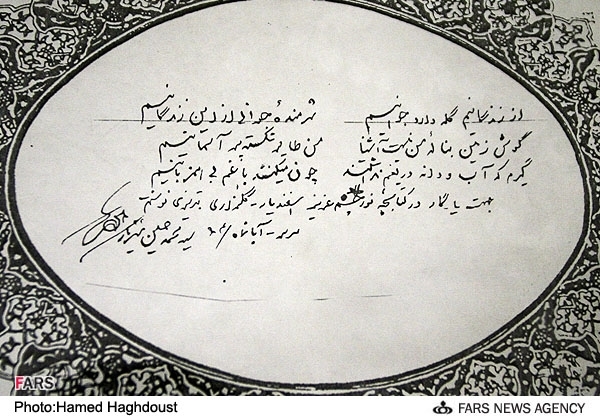 از زندگانیم گله دارد جوانیم شرمندهٔ جوانی از این زندگانیم
گوش زمین بنالهٔ من نیست آشنا من طایر شکسته پر آسمانیم
گیرم که آب و دانه دریغم نداشتند چون میکشند با غم بی همزبانیم
جهت یادگار در کتابچه نورچشم عزیز اسفندیار گلکاری تبریزی نوشتم
تبریز - آبانماه سید محمد حسین شهریار
FARS
Photo:Hamed Haghdoust
FARS NEWS AGENCY